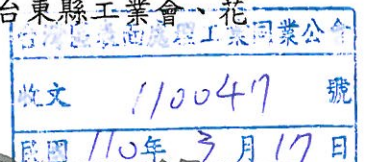 台東縣工業會、花
台灣區表面處理工業同業公會
收文 110047 號
民國 110年 3月 17日